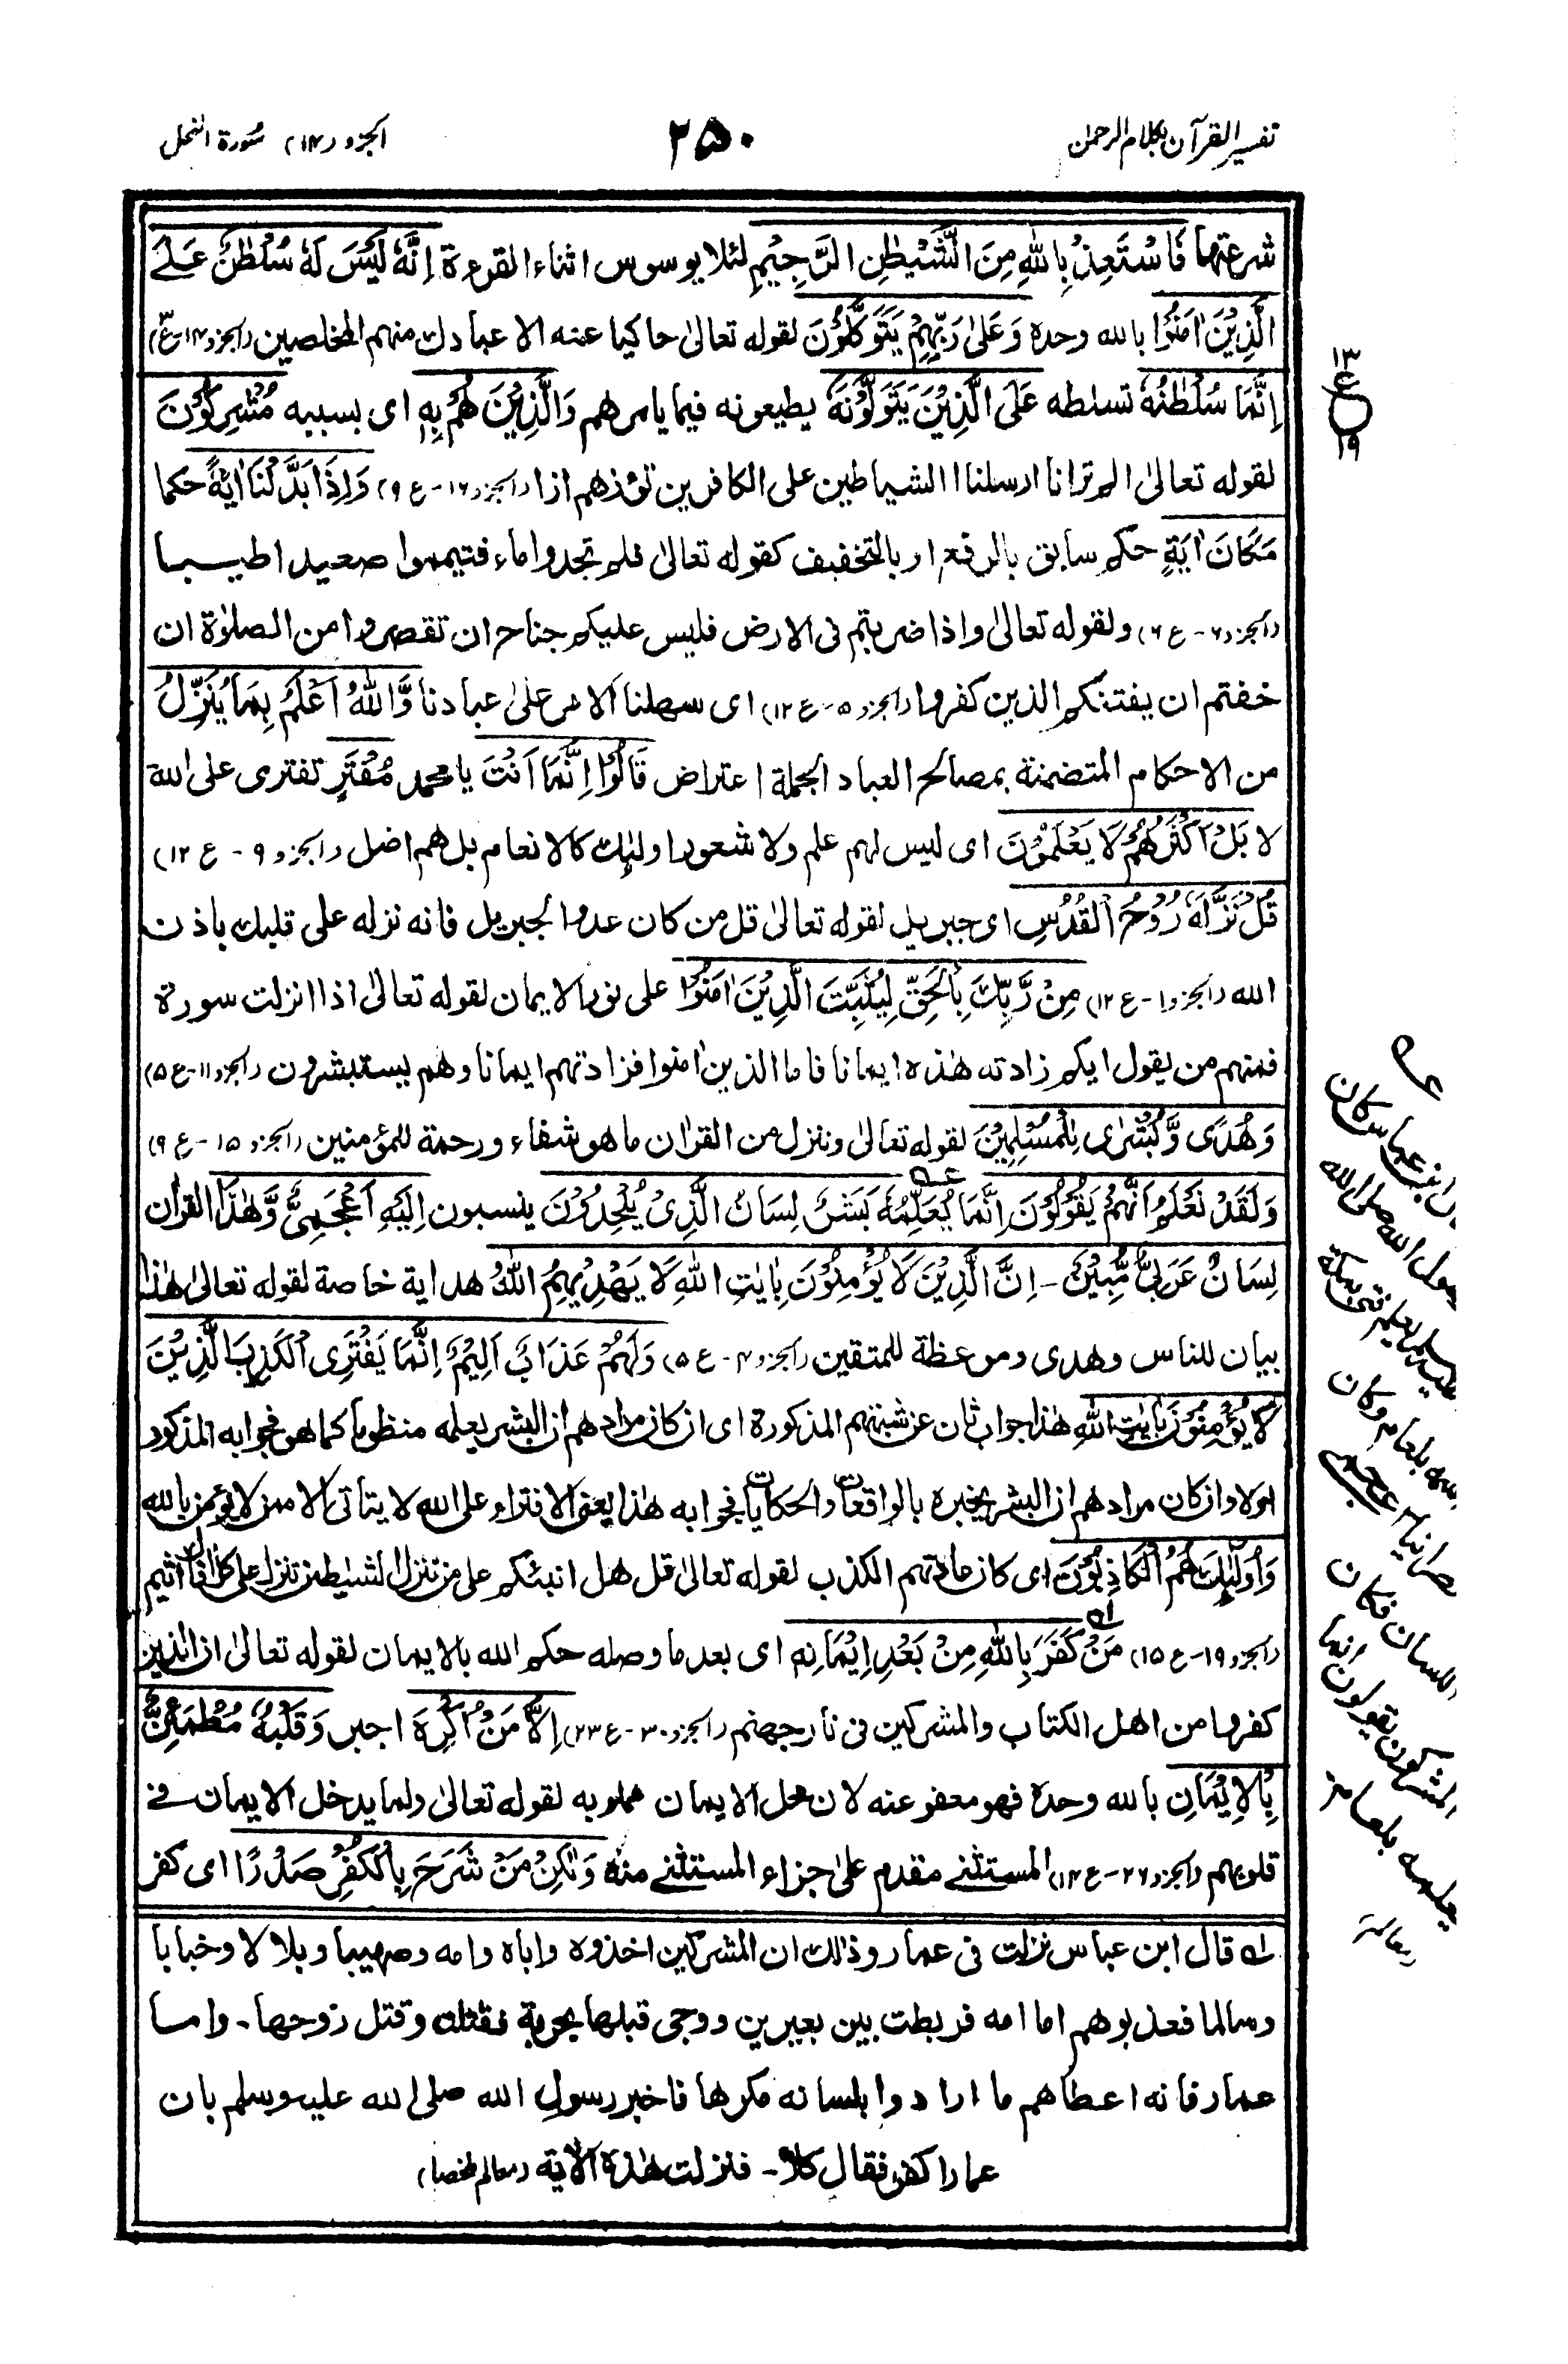 تفسير القرآن بكلام الرحمن
٢٥٠
الجزو (١٤) سُورة النحل
شرعتها فَاسْتَعِذْ بِاللّٰهِ مِنَ الشَّيْطٰنِ الرَّجِيْمِ لئلا يوسوس اثناء القرءة اِنَّهٗ لَيْسَ لَهٗ سُلْطٰنٌ عَلَى
الَّذِيْنَ اٰمَنُوْا بالله وحده وَعَلٰى رَبِّهِمْ يَتَوَكَّلُوْنَ لقوله تعالىٰ حاكيا عنه الا عبادك منهم المخلصين (الجزو ١٤-ع٣)
اِنَّمَا سُلْطٰنُهٗ تسلطه عَلَى الَّذِيْنَ يَتَوَلَّوْنَهٗ يطيعونه فيما يامرهم وَالَّذِيْنَ هُمْ بِهٖ اى بسببه مُشْرِكُوْنَ
لقوله تعالىٰ الم تر انا ارسلنا الشياطين على الكافرين تؤزهم ازا (الجزو ١٦-ع ٩) وَاِذَا بَدَّلْنَا اٰيَةً حكما
مَّكَانَ اٰيَةٍ حكم سابق بالرفع او بالتخفيف كقوله تعالىٰ فلم تجدوا ماء فتيمموا صعيدا طيبا
(الجزو ٦-ع ٦) ولقوله تعالىٰ واذا ضربتم فى الارض فليس عليكم جناح ان تقصروا من الصلوٰة ان
خفتم ان يفتنكم الذين كفروا (الجزو ٥-ع ١٢) اى سهلنا الامر علىٰ عبادنا وَّاللّٰهُ اَعْلَمُ بِمَا يُنَزِّلُ
من الاحكام المتضمنة بمصالح العباد الجملة اعتراض قَالُوْٓا اِنَّمَا اَنْتَ يا محمد مُفْتَرٍ تفترى على الله
لا بَلْ اَكْثَرُهُمْ لَا يَعْلَمُوْنَ اى ليس لهم علم ولا شعور اولٰئك كالانعام بل هم اضل (الجزو ٩-ع ١٢)
قُلْ نَزَّلَهٗ رُوْحُ الْقُدُسِ اى جبريل لقوله تعالىٰ قل من كان عدوا لجبريل فانه نزله على قلبك باذن
الله (الجزو ١-ع ١٢) مِنْ رَّبِّكَ بِالْحَقِّ لِيُثَبِّتَ الَّذِيْنَ اٰمَنُوْا على نور الايمان لقوله تعالىٰ اذا انزلت سورة
فمنهم من يقول ايكم زادته هٰذه ايمانا فاما الذين اٰمنوا فزادتهم ايمانا وهم يستبشرون (الجزو ١١-ع ٥)
وَهُدًى وَّبُشْرٰى لِلْمُسْلِمِيْنَ لقوله تعالىٰ وننزل من القراٰن ما هو شفاء ورحمة للمؤمنين (الجزو ١٥-ع ٩)
وَلَقَدْ نَعْلَمُ اَنَّهُمْ يَقُوْلُوْنَ اِنَّمَا يُعَلِّمُهٗ بَشَرٌ لِسَانُ الَّذِيْ يُلْحِدُوْنَ ينسبون اِلَيْهِ اَعْجَمِيٌّ وَّهٰذَا القراٰن
لِسَانٌ عَرَبِيٌّ مُّبِيْنٌ - اِنَّ الَّذِيْنَ لَا يُؤْمِنُوْنَ بِاٰيٰتِ اللّٰهِ لَا يَهْدِيْهِمُ اللّٰهُ هداية خاصة لقوله تعالىٰ هٰذا
بيان للناس وهدى وموعظة للمتقين (الجزو ٤-ع ٥) وَلَهُمْ عَذَابٌ اَلِيْمٌ اِنَّمَا يَفْتَرِى الْكَذِبَ الَّذِيْنَ
لَا يُؤْمِنُوْنَ بِاٰيٰتِ اللّٰهِ هٰذا جواب ثان عن شبهتهم المذكورة اى ان كان مرادهم ان البشر يعلمه منظوما كما هو فجوابه المذكور
اولا وان كان مرادهم ان البشر يخبره بالواقعات والحكايات فجوابه هٰذا يعنى الافتراء على الله لا يتأتى الا ممن لا يؤمن بالله
وَاُولٰٓئِكَ هُمُ الْكَاذِبُوْنَ اى كان عادتهم الكذب لقوله تعالىٰ قل هل انبئكم على من تنزل الشيٰطين تنزل على كل افاك اثيم
(الجزو ١٩-ع ١٥) مَنْ كَفَرَ بِاللّٰهِ مِنْ بَعْدِ اِيْمَانِهٖ اى بعد ما وصله حكم الله بالايمان لقوله تعالىٰ ان الذين
كفروا من اهل الكتاب والمشركين فى نار جهنم (الجزو ٣٠-ع ٢٣) اِلَّا مَنْ اُكْرِهَ اجبر وَقَلْبُهٗ مُطْمَئِنٌّ
بِالْاِيْمَانِ بالله وحده فهو معفو عنه لان محل الايمان مملو به لقوله تعالىٰ ولما يدخل الايمان فى
قلوبهم (الجزو ٢٦-ع ١٤) المستثنى مقدم علىٰ جزاء المستثنى منه وَلٰكِنْ مَنْ شَرَحَ بِالْكُفْرِ صَدْرًا اى كفر
لـه قال ابن عباس نزلت فى عمار وذلك ان المشركين اخذوه واباه وامه وصهيبا وبلالا وخبابا
وسالما فعذبوهم اما امه فربطت بين بعيرين ووجى قبلها بحربة فقتلت وقتل زوجها - واما
عمار فانه اعطاهم ما ارادوا بلسانه مكرها فاخبر رسول الله صلى الله عليه وسلم بان
عمارا كفر فقال كلا - فنزلت هٰذه الاٰية (معالم ملخصا)
١٣
ع
١٩
عـه
ابن عباس كان
رسول الله صلى الله
عليه وسلم يعلم قينا بمكة
اسمه بلعام وكان
نصرانيا عجمى
اللسان فكان
المشركون يقولون انما
يعلمه بلعام
معالم